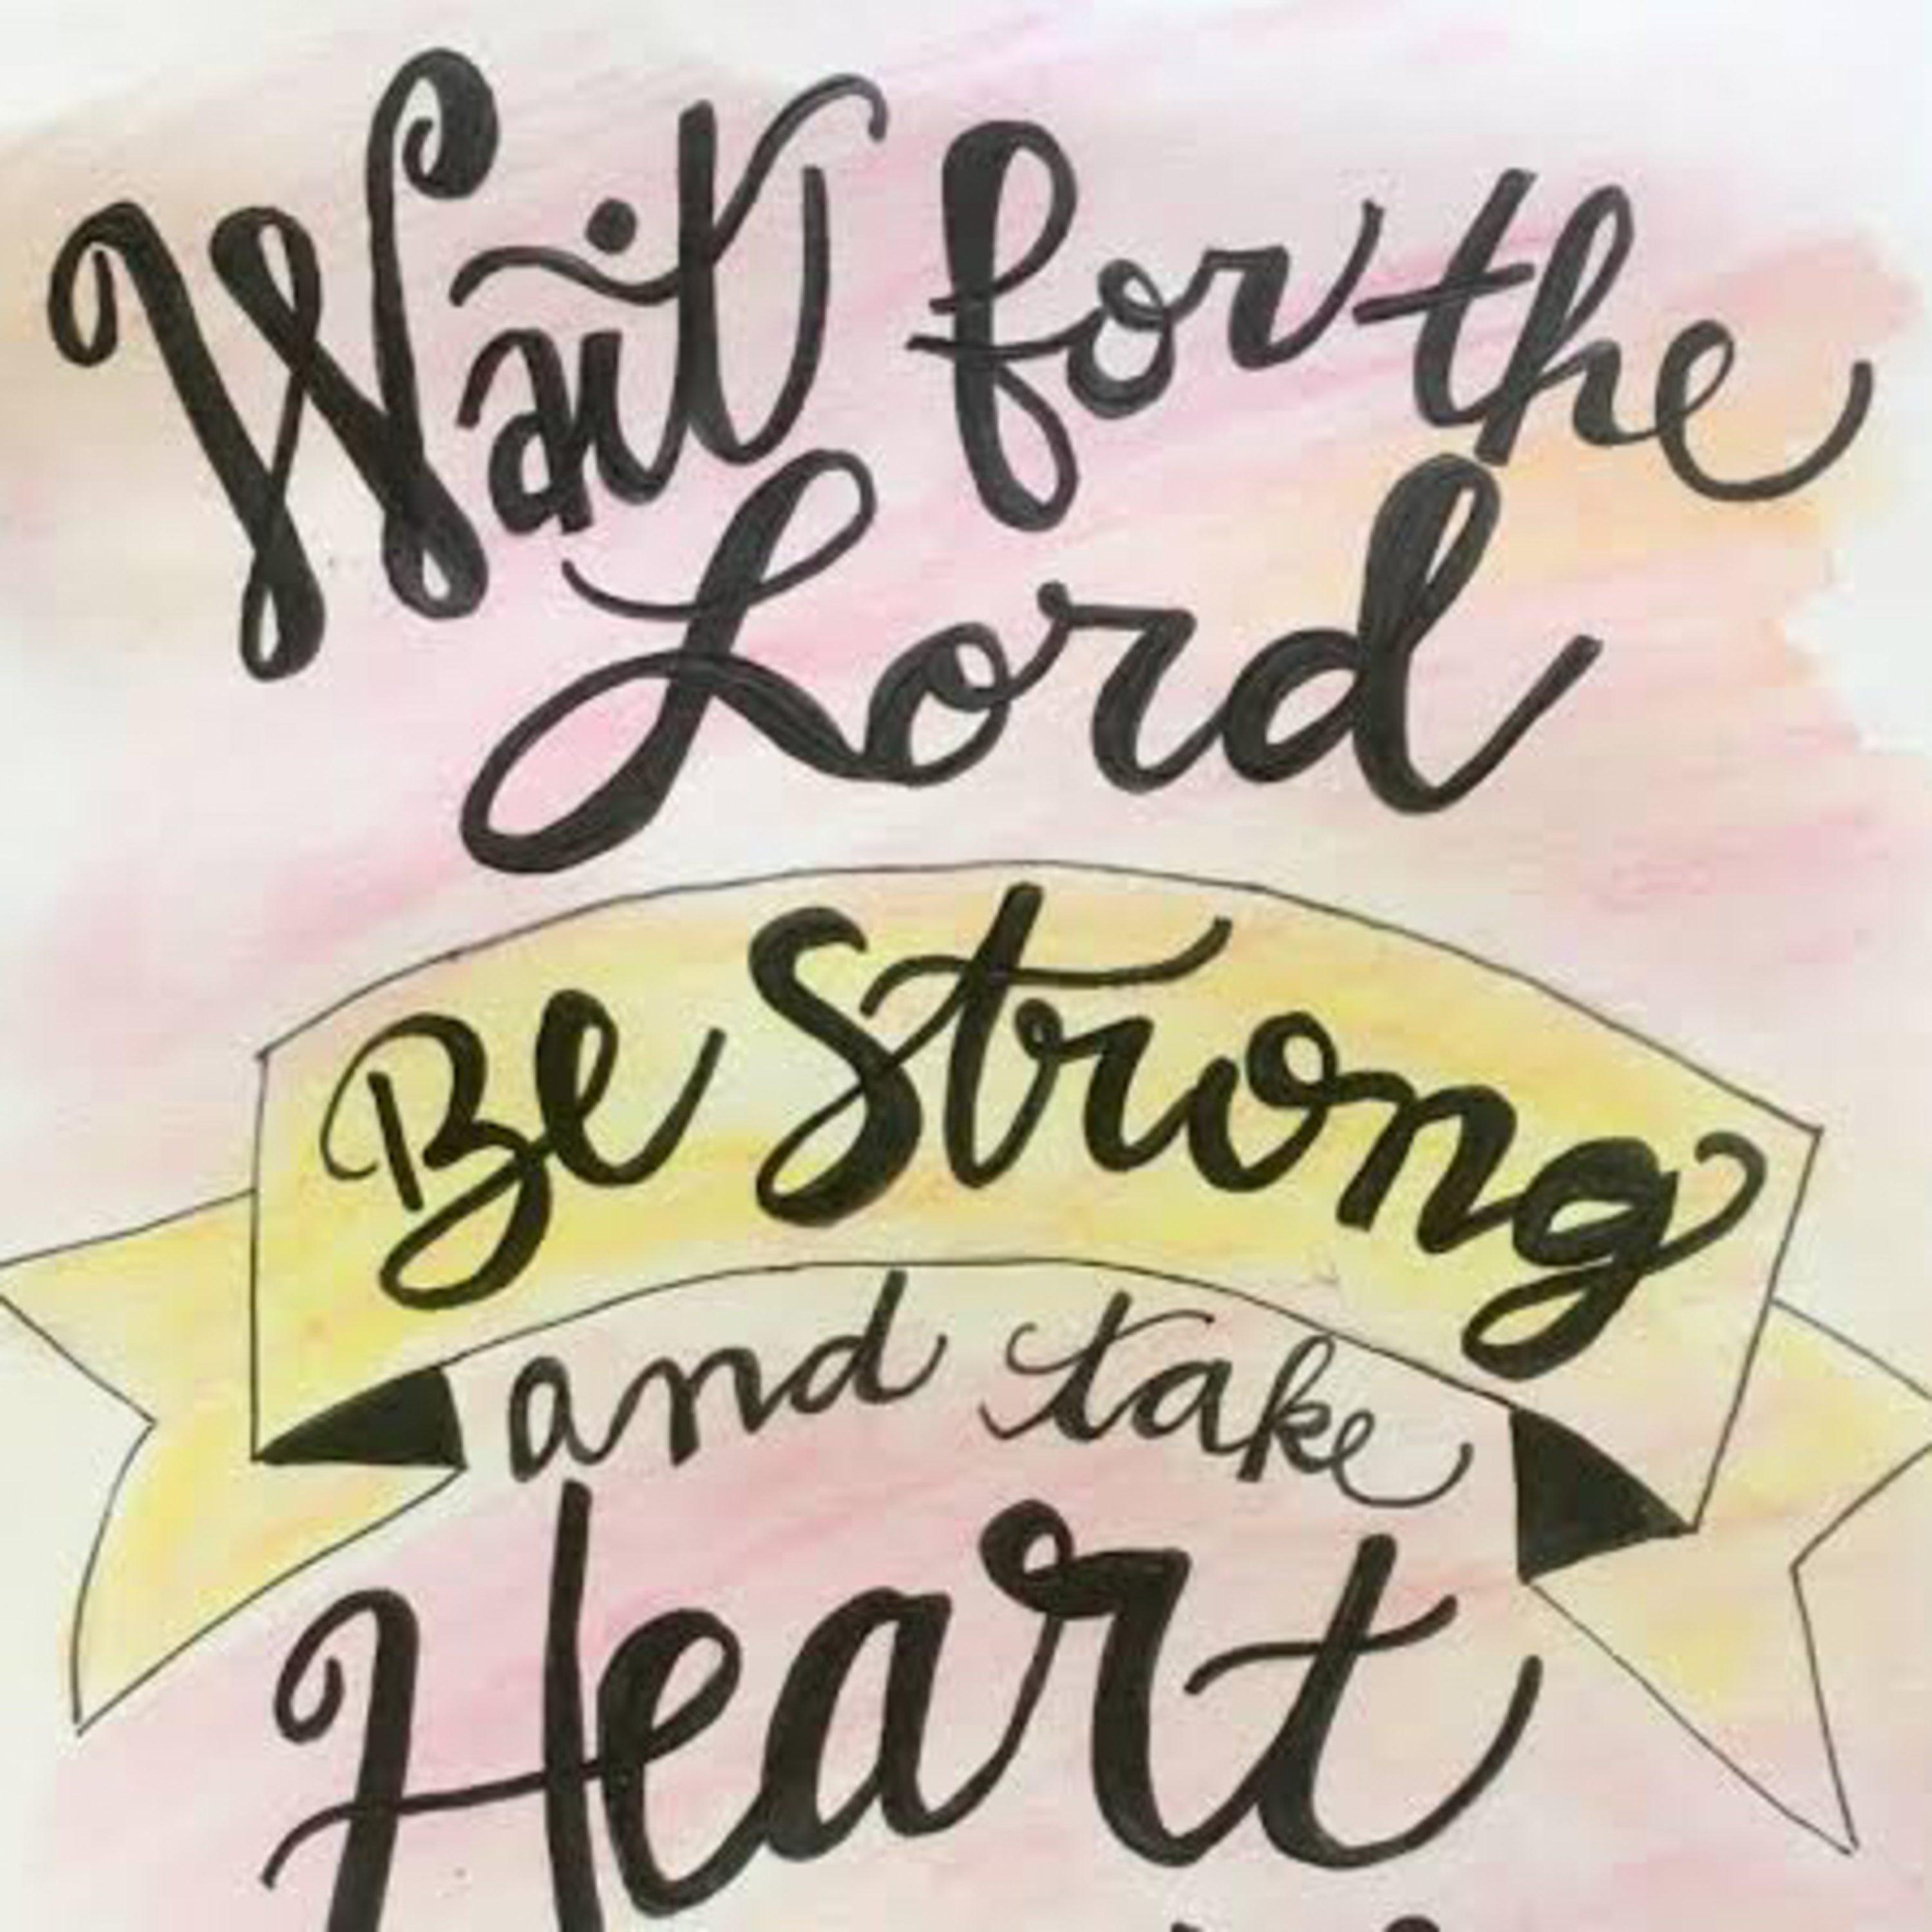 Wait for the
Lord
Be Strong
and take
Heart